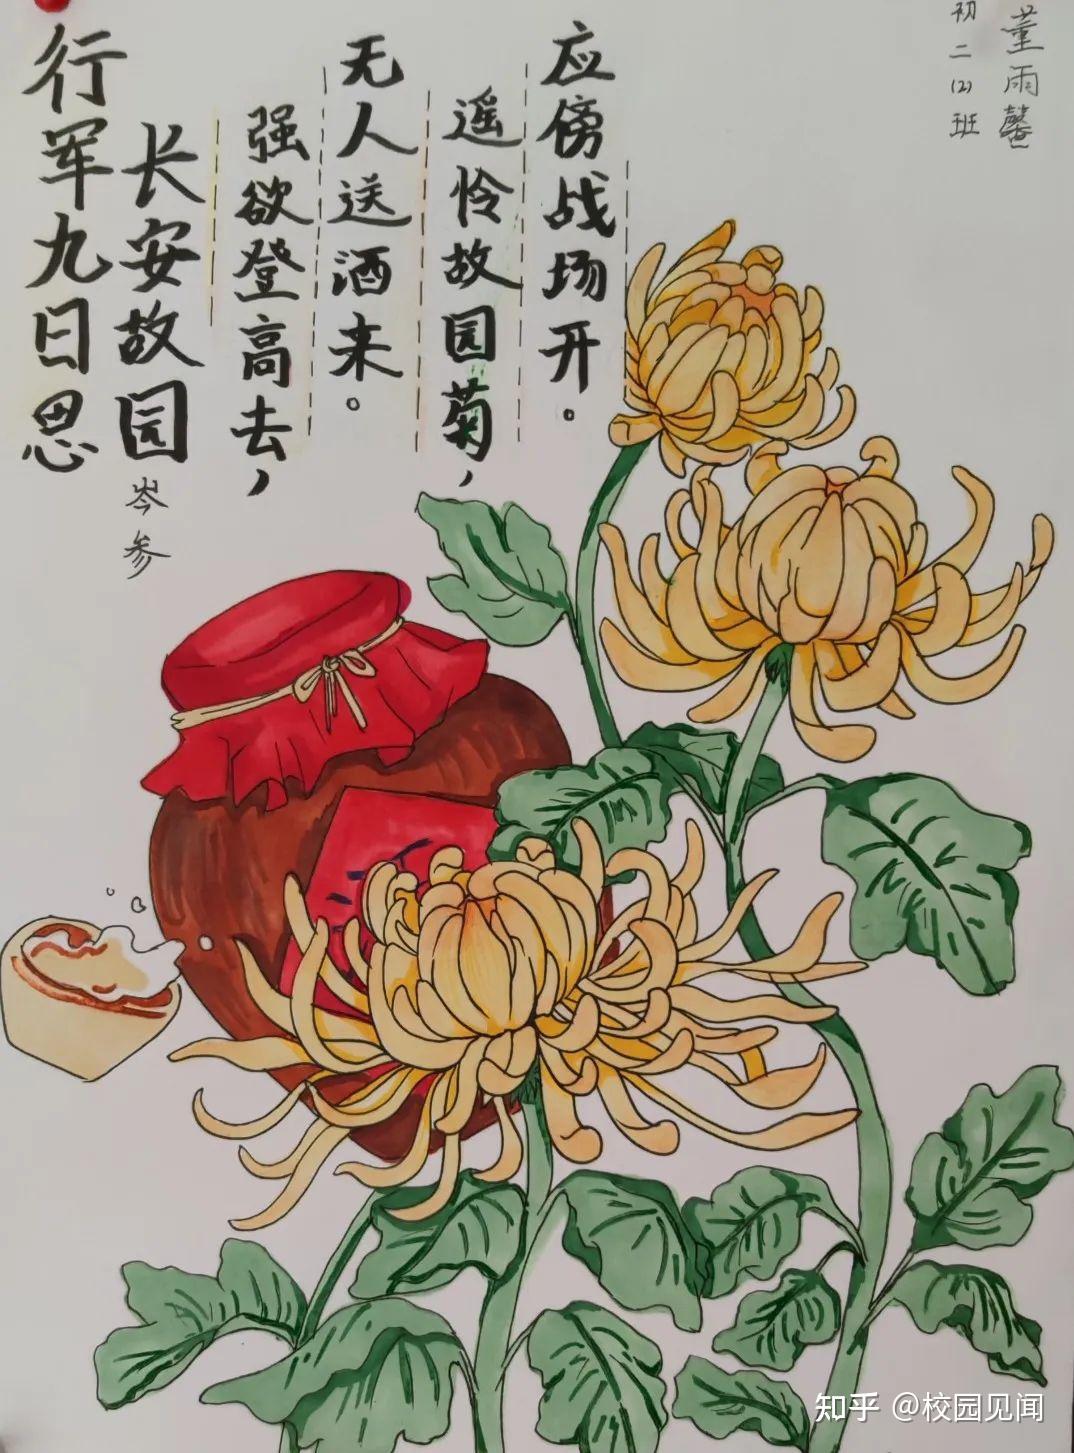 行军九日思
长安故园
岑参
强欲登高去，
无人送酒来。
遥怜故园菊，
应傍战场开。
初二（2）班
董雨馨
知乎 @校园见闻